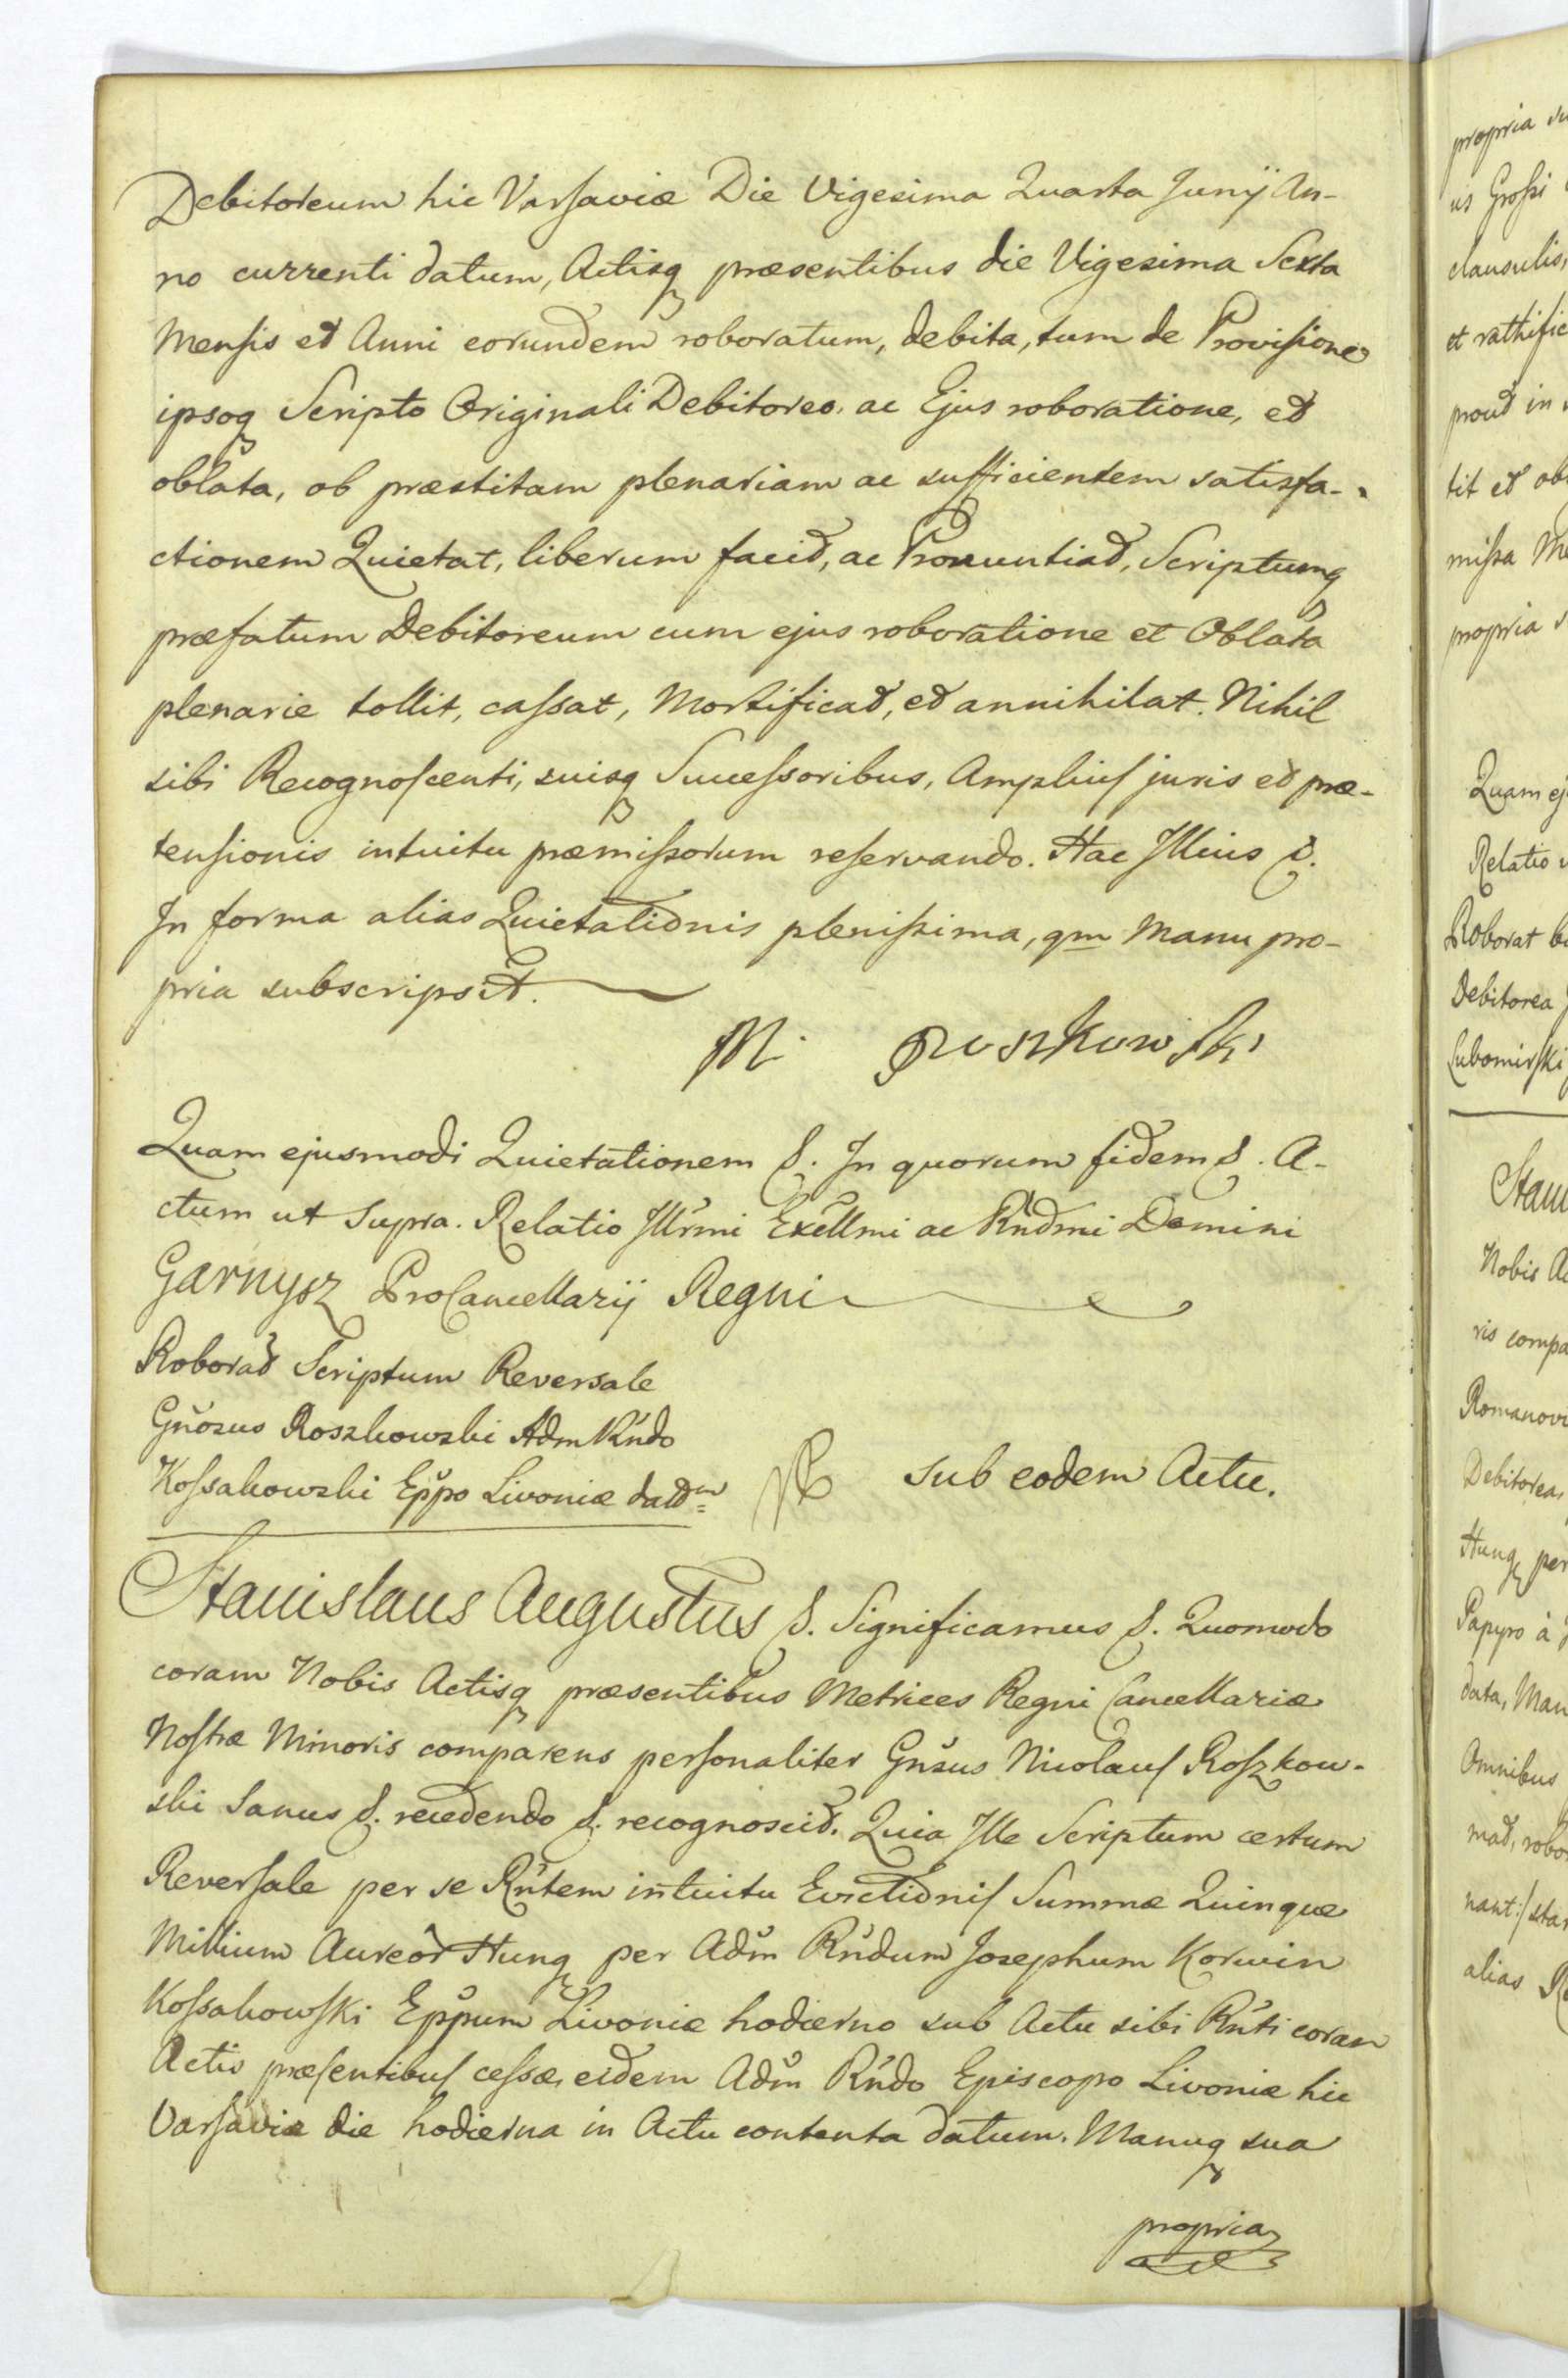 Debitoreum hic Varsaviæ Die Vigesima Quarta Junij An-
no currenti datum, Actisq præsentibus die Vigesima Sexta
Mensis et Anni eorundem roboratum, debita, tum de Provisione
ipsoq Scripto Originali Debitoreo, ac Ejus roboratione, et
oblata, ob præstitam plenariam ac sufficientem satisfa-
ctionem Quietat, liberum facit, ac Pronuntiat, Scriptumq
præfatum Debitoreum cum ejus roboratione et Oblata
plenarie tollit, cassat, Mortificat, et annihilat. Nihil
sibi Recognoscenti, suisq Successoribus, Amplius juris et præ-
tensionis intuitu præmissorum reservando. Hac Illius &.
In forma alias Quietationis plenissima, qm Manu pro-
pria subscripsit.
M Roszkowski
Quam ejusmodi Quietationem &. In quorum fidem &. A-
ctum ut Supra. Relatio Illrmi Excllmi ac Rndmi Domini
Garnysz ProCancellarij Regni
Roborat Scriptum Reversale
Gnosus Roszkowski Adm Rndo
Kossakowski Eppo Livoniæ datm
sub eodem Actu.
Stanislaus Augustus &. Significamus &. Quomodo
coram Nobis Actisq præsentibus Metrices Regni Cancellariæ
Nostræ Minoris comparens personaliter Gnsus Nicolaus Roszkow-
ski Sanus &. recedendo &. recognoscit. Quia Ille Scriptum certum
Reversale per se Rntem intuitu Evictionis Summæ Quinque
Millium Aureor Hung per Adm Rndum Josephum Korwin
Kossakowski Eppum Livoniæ hodierno sub Actu sibi Rnti coram
Actis præsentibus cessæ, eidem Adm Rndo Episcopo Livoniæ hic
Varsaviæ die hodierna in Actu contenta datum. Manuq sua
propria
propria
Grossi
clausulis,
et
prout in
tit et
missa
propria
Quam
Relatio
Roborat
Debitorea
Lubomirski
Nobis
ris
Debitorea,
Hunq per
Papyro à
data,
Omnibus
alias